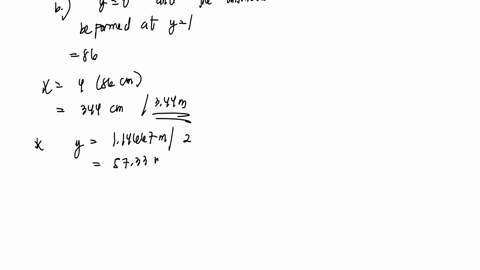 b.) y=0
be formed at y=1
=86
x = 4 (86 cm)
= 344 cm / 3.44m
x y = 1.14667m / 2
= 57.33